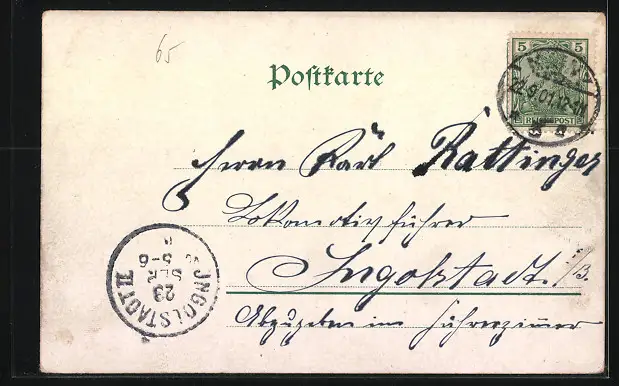 65
Postkarte
5 5
REICHSPOST
22.9.01.12-1N
Herrn Karl Rattinger
Lokomotivführer
Ingolstadt. a/B.
Abzugeben im Führerzimmer
INGOLSTADT II.
23
SEP
5-6